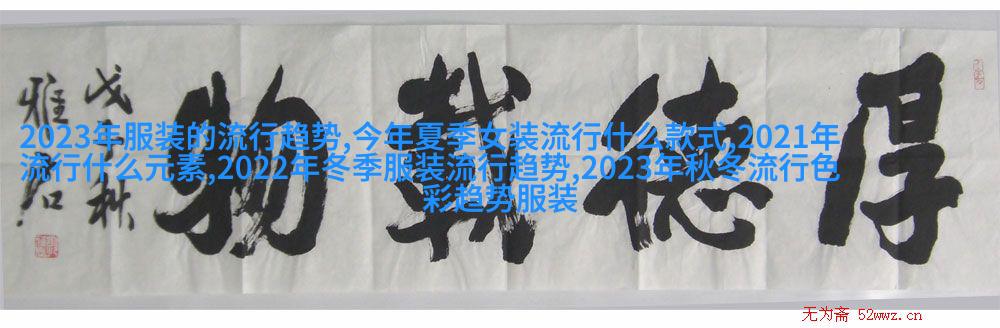 厚德載物
2023年服装的流行趋势,今年夏季女装流行什么款式,2021年
流行什么元素,2022年冬季服装流行趋势,2023年秋冬流行色
彩趋势服装
无为斋 52wwz.cn